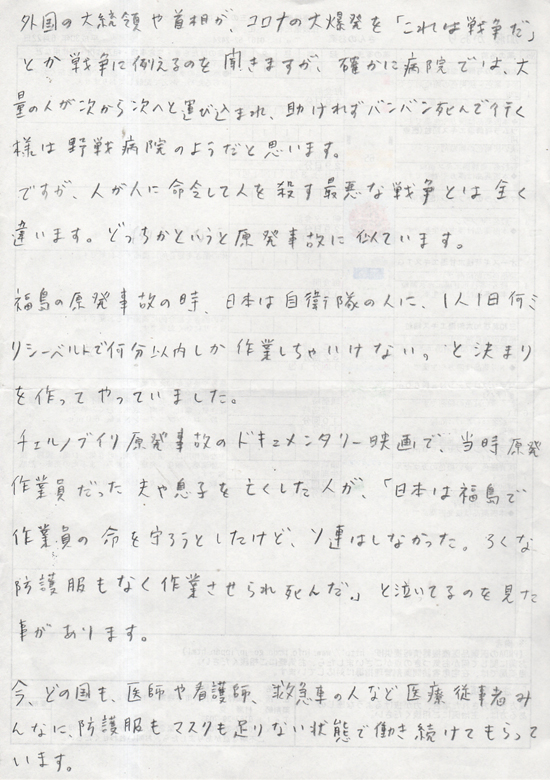 外国の大統領や首相が、コロナの大爆発を「これは戦争だ」
とか戦争に例えるのを聞きますが、確かに病院では、大
量の人が次から次へと運び込まれ、助けれずバンバン死んで行く
様は野戦病院のようだと思います。
ですが、人が人に命令して人を殺す最悪な戦争とは全く
違います。どっちかというと原発事故に似ています。
福島の原発事故の時、日本は自衛隊の人に、1人1日何ミ
リシーベルトで何分以内しか作業しちゃいけない。と決まり
を作ってやっていました。
チェルノブイリ原発事故のドキュメンタリー映画で、当時原発
作業員だった夫や息子を亡くした人が、「日本は福島で
作業員の命を守ろうとしたけど、ソ連はしなかった。ろくな
防護服もなく作業させられ死んだ。」と泣いてるのを見た
事があります。
今、どの国も、医師や看護師、救急車の人など医療従事者み
んなに、防護服もマスクも足りない状態で働き続けてもらって
います。